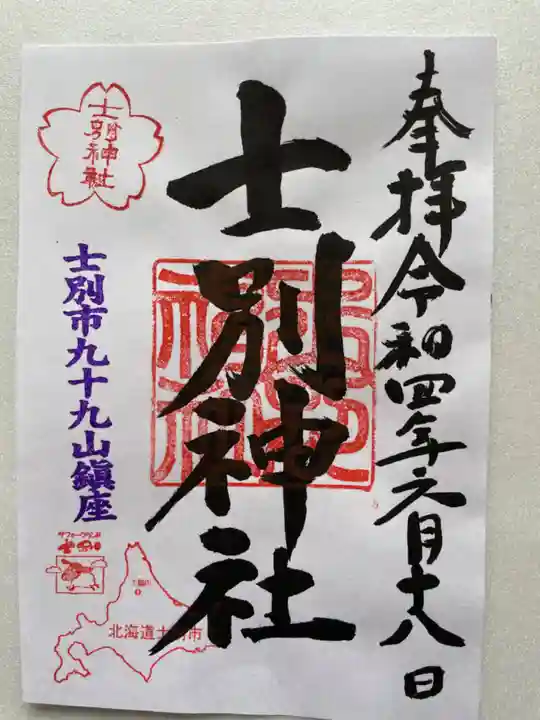 奉拝令和四年六月十八日
士別神社
士別神社
士別市九十九山鎮座
サフォークランド
士別
北海道士別市